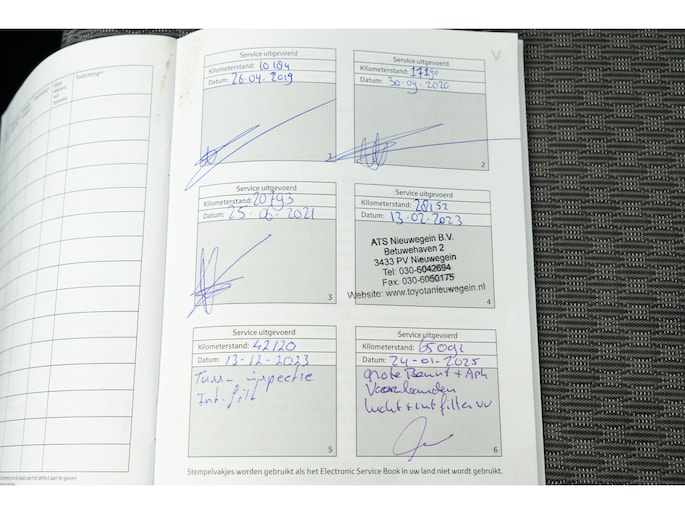 Toelichting*
V
Service uitgevoerd
Kilometerstand: 10184
Datum: 26-04-2019
1
Service uitgevoerd
Kilometerstand: 17190
Datum: 30-09-2020
2
Service uitgevoerd
Kilometerstand: 20793
Datum: 25-06-2021
3
Service uitgevoerd
Kilometerstand: 28152
Datum: 13-02-2023
ATS Nieuwegein B.V.
Betuwehaven 2
3433 PV Nieuwegein
Tel: 030-6042694
Fax: 030-6050175
Website: www.toyotanieuwegein.nl
4
Service uitgevoerd
Kilometerstand: 42120
Datum: 13-12-2023
Tuss- inspectie
Int. filt
5
Service uitgevoerd
Kilometerstand:
Datum: 24-01-2025
grote Beurt + Apk
Voorbanden
lucht + int filter vv
6
Stempelvakjes worden gebruikt als het Electronic Service Book in uw land niet wordt gebruikt.